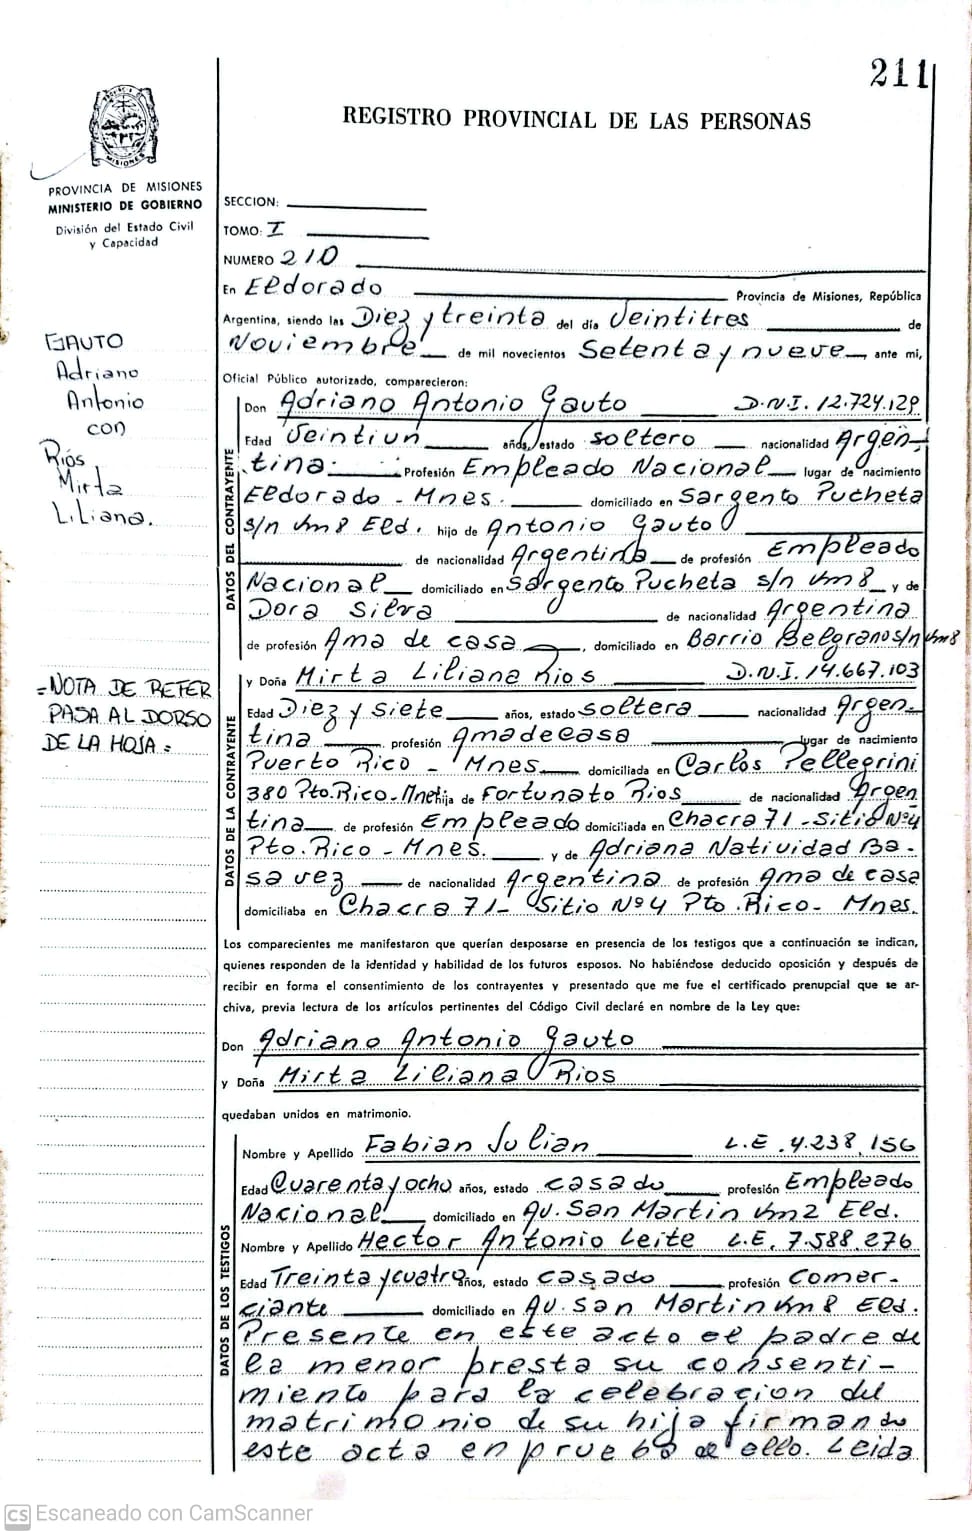 211
REGISTRO PROVINCIAL DE LAS PERSONAS
MISIONES
PROVINCIA DE MISIONES
MINISTERIO DE GOBIERNO
División del Estado Civil
y Capacidad
SECCION:
TOMO: I
NUMERO 210
En Eldorado Provincia de Misiones, República
Argentina, siendo las Diez y treinta del día Veintitres de
Noviembre de mil novecientos Setenta y nueve, ante mi,
Oficial Público autorizado, comparecieron:
GAUTO
Adriano
Antonio
con
Ríos
Mirta
Liliana.
DATOS DEL CONTRAYENTE
Don Adriano Antonio Gauto D.N.I. 12.724.129
Edad Veintiun años, estado soltero nacionalidad Argen-
tina Profesión Empleado Nacional lugar de nacimiento
Eldorado - Mnes. domiciliado en Sargento Pucheta
s/n Km8 Eld. hijo de Antonio Gauto
de nacionalidad Argentina de profesión Empleado
Nacional domiciliado en Sargento Pucheta s/n Km8 y de
Dora Silva de nacionalidad Argentina
de profesión Ama de casa, domiciliado en Barrio Belgrano s/n Km8
=NOTA DE REFER
PASA AL DORSO
DE LA HOJA=
DATOS DE LA CONTRAYENTE
y Doña Mirta Liliana Rios D.N.I. 14.667.103
Edad Diez y siete años, estado soltera nacionalidad Argen-
tina, profesión Ama de casa lugar de nacimiento
Puerto Rico - Mnes domiciliada en Carlos Pellegrini
380 Pto.Rico-Mnes hija de Fortunato Rios de nacionalidad Argen
tina de profesión Empleado domiciliada en Chacra 71-Sitio Nº4
Pto.Rico - Mnes. y de Adriana Natividad Ba-
savez de nacionalidad Argentina de profesión Ama de casa
domiciliaba en Chacra 71- Sitio Nº4 Pto.Rico- Mnes.
Los comparecientes me manifestaron que querían desposarse en presencia de los testigos que a continuación se indican,
quienes responden de la identidad y habilidad de los futuros esposos. No habiéndose deducido oposición y después de
recibir en forma el consentimiento de los contrayentes y presentado que me fue el certificado prenupcial que se ar-
chiva, previa lectura de los artículos pertinentes del Código Civil declaré en nombre de la Ley que:
Don Adriano Antonio Gauto
y Doña Mirta Liliana Rios
quedaban unidos en matrimonio.
DATOS DE LOS TESTIGOS
Nombre y Apellido Fabian Julian L.E. 4.238.156
Edad Quarenta y ocho años, estado casado profesión Empleado
Nacional domiciliado en Av. San Martin Km2 Eld.
Nombre y Apellido Hector Antonio Leite L.E. 7.588.276
Edad Treinta y cuatro años, estado casado profesión Comer-
ciante domiciliado en Av. San Martin Km 8 Eld.
Presente en este acto el padre de
la menor presta su consenti-
miento para la celebracion del
matrimonio de su hija firmando
este acta en prueba de ello. Leida
CS Escaneado con CamScanner